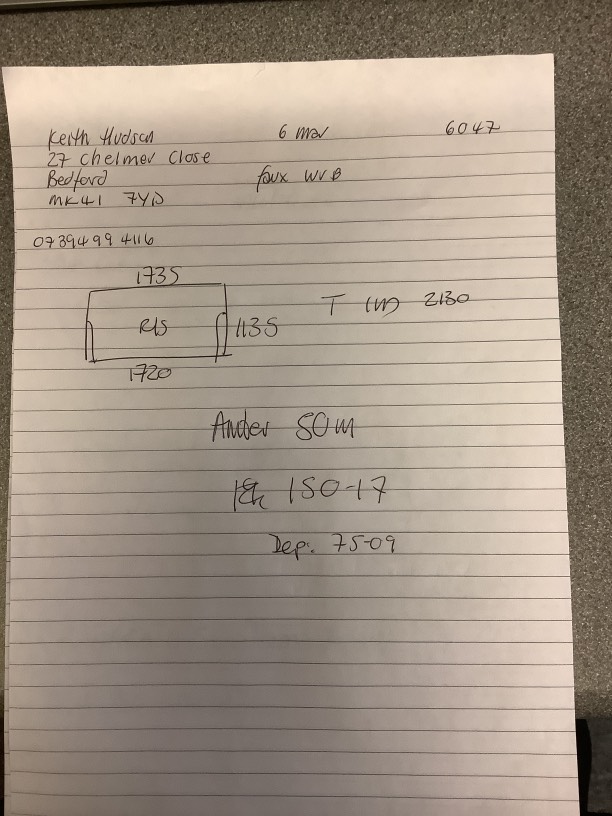 Keith Hudson 6 mar 6047
27 Chelmer Close
Bedford faux WVB
MK41 7YD
0739499 4116
1735
R/S 1135 T (W) 2130
1720
Amber 50m
150-17
Dep. 75-09